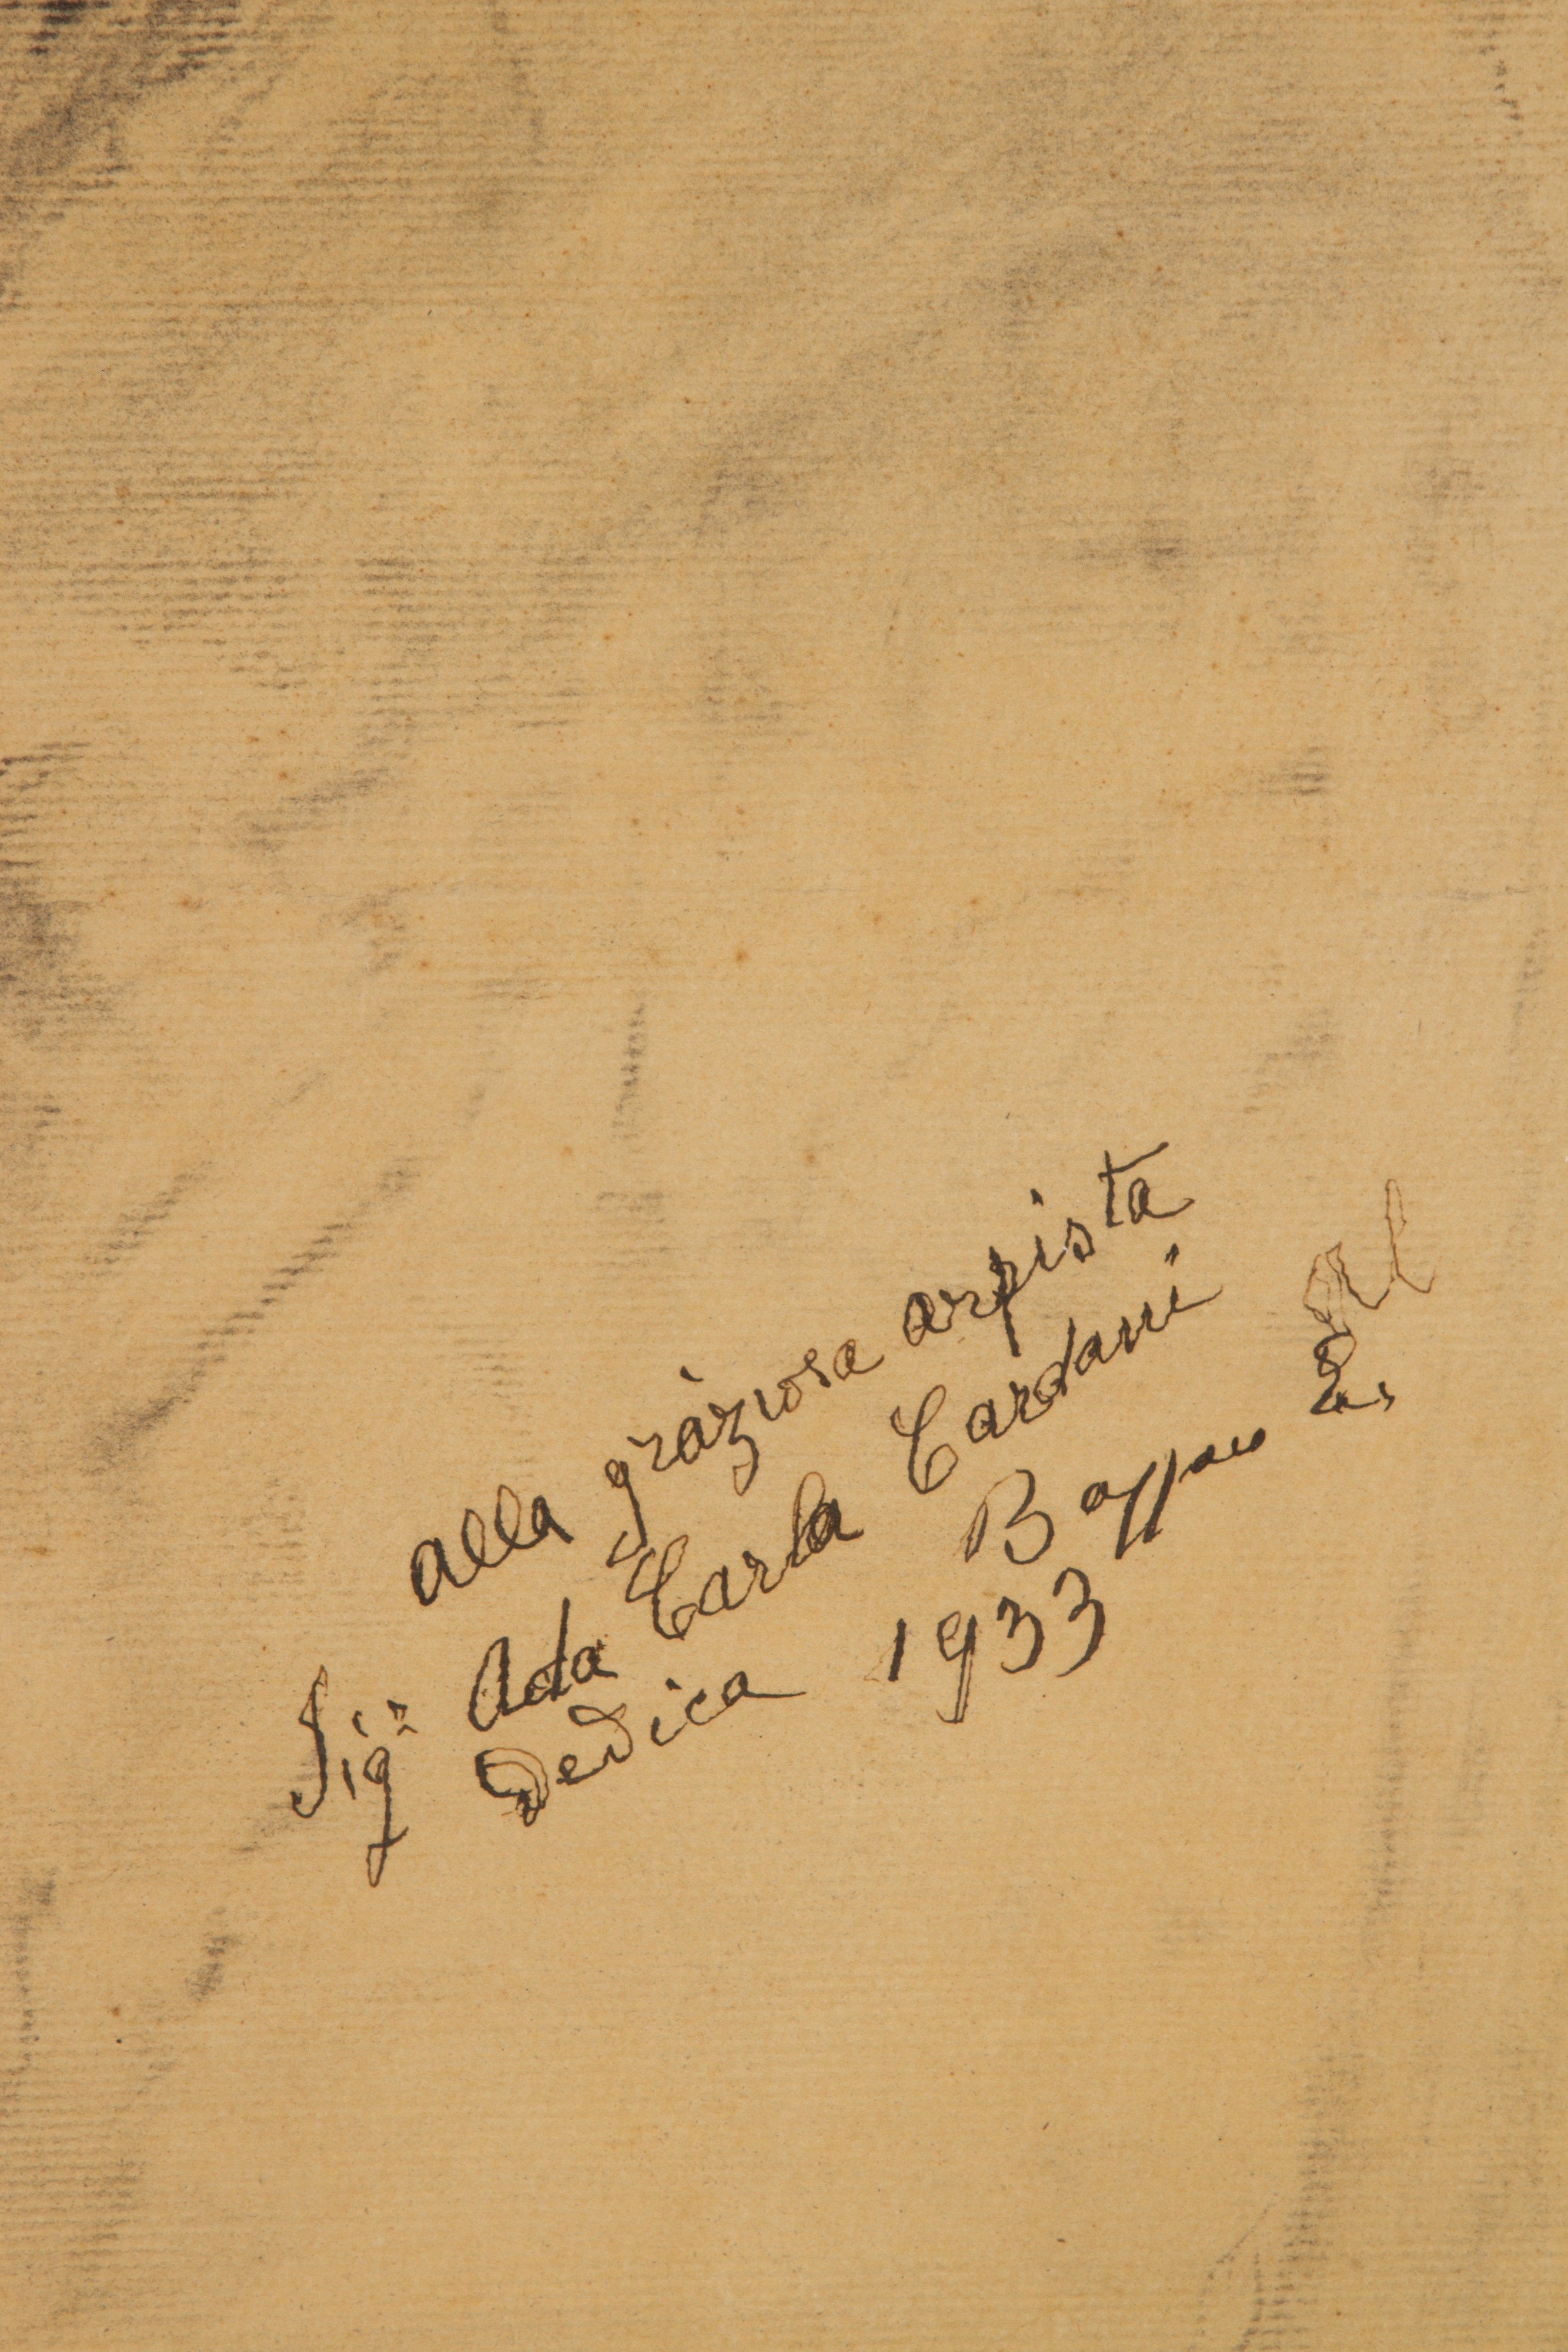 alla graziosa arpista
Sig.ª Ada Carla Cardani
Dedica
1933